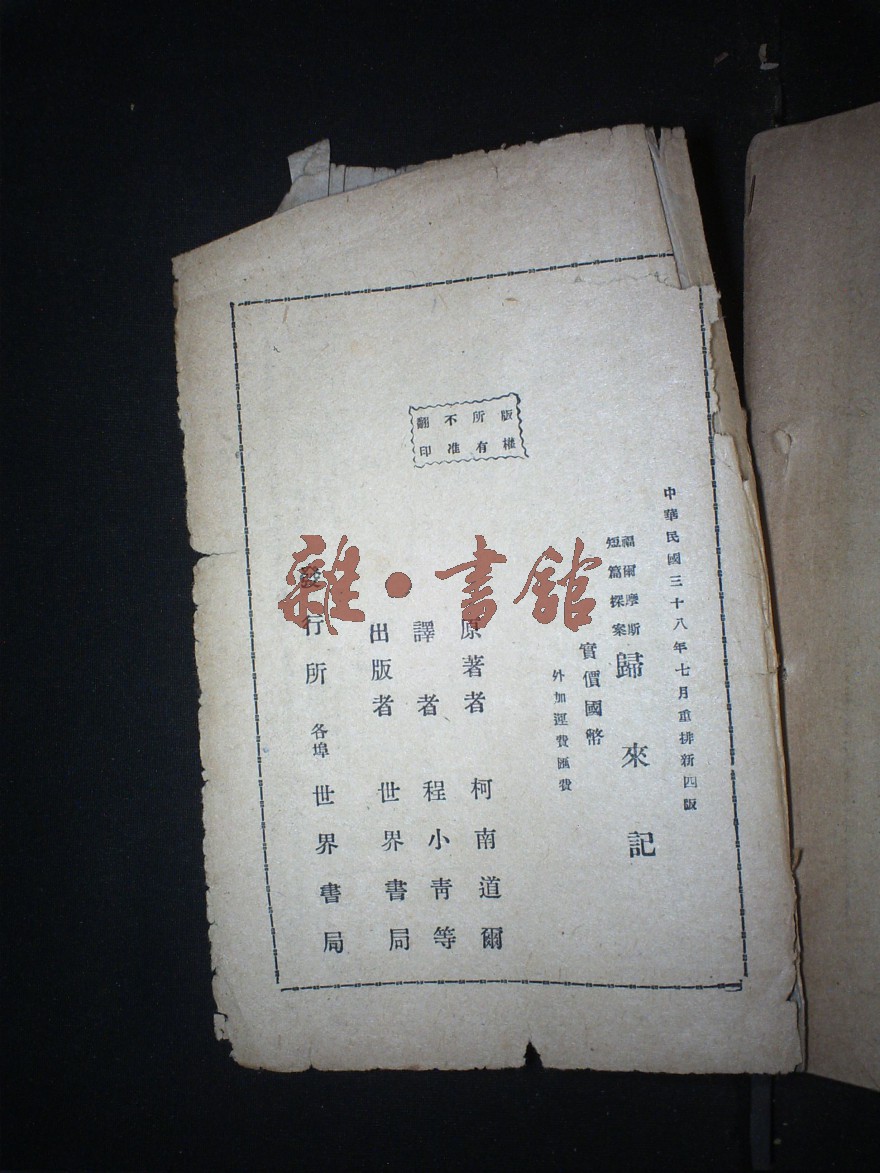 版權所有
不准翻印
中華民國三十八年七月重排新四版
福爾摩斯
短篇探案
歸來記
實價國幣
外加運費匯費
原著者 柯南道爾
譯者 程小青等
出版者 世界書局
發行所 各埠世界書局
雜·書館